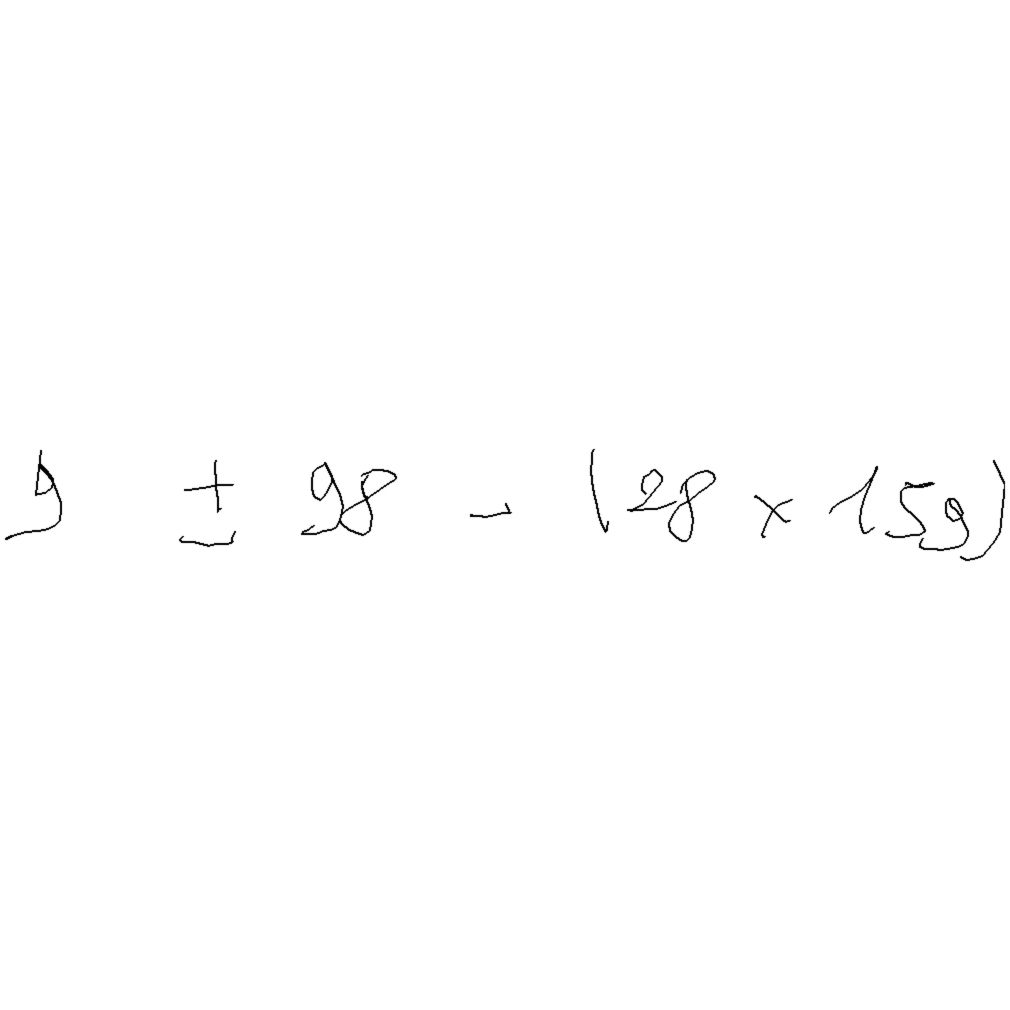 9 ± 98 - (28 × 159)